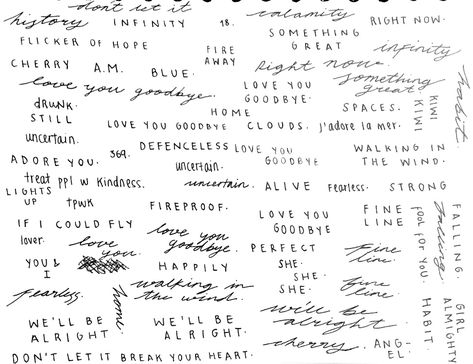 don't let it
history
INFINITY
18.
calamity
RIGHT NOW.
FLICKER OF HOPE
FIRE
AWAY
SOMETHING
GREAT
infinity
CHERRY
A.M.
BLUE.
Right now.
something
great
habit.
love you goodbye.
LOVE YOU
GOODBYE.
KIWI
KIWI
drunk.
STILL
HOME
SPACES.
LOVE YOU GOODBYE
CLOUDS.
j'adore la mer.
uncertain.
369.
DEFENCELESS
LOVE YOU
GOODBYE
WALKING IN
THE WIND.
ADORE YOU.
uncertain.
treat ppl w kindness.
uncertain.
ALIVE
fearless.
STRONG
LIGHTS
UP
tpwk
FIREPROOF.
LOVE YOU
GOODBYE
FINE
LINE
FOOL FOR YOU.
falling
FALLING.
IF I COULD FLY
lover.
love
you
love you
goodbye.
PERFECT
fine
line.
YOU &
I
HAPPILY
SHE.
SHE.
SHE.
fine
line.
fearless.
home.
walking in
the wind.
HABIT.
GIRL
ALMIGHTY
WE'LL BE
ALRIGHT.
WE'LL BE
ALRIGHT.
we'll be
alright
cherry.
ANG-
EL.
DON'T LET IT BREAK YOUR HEART.